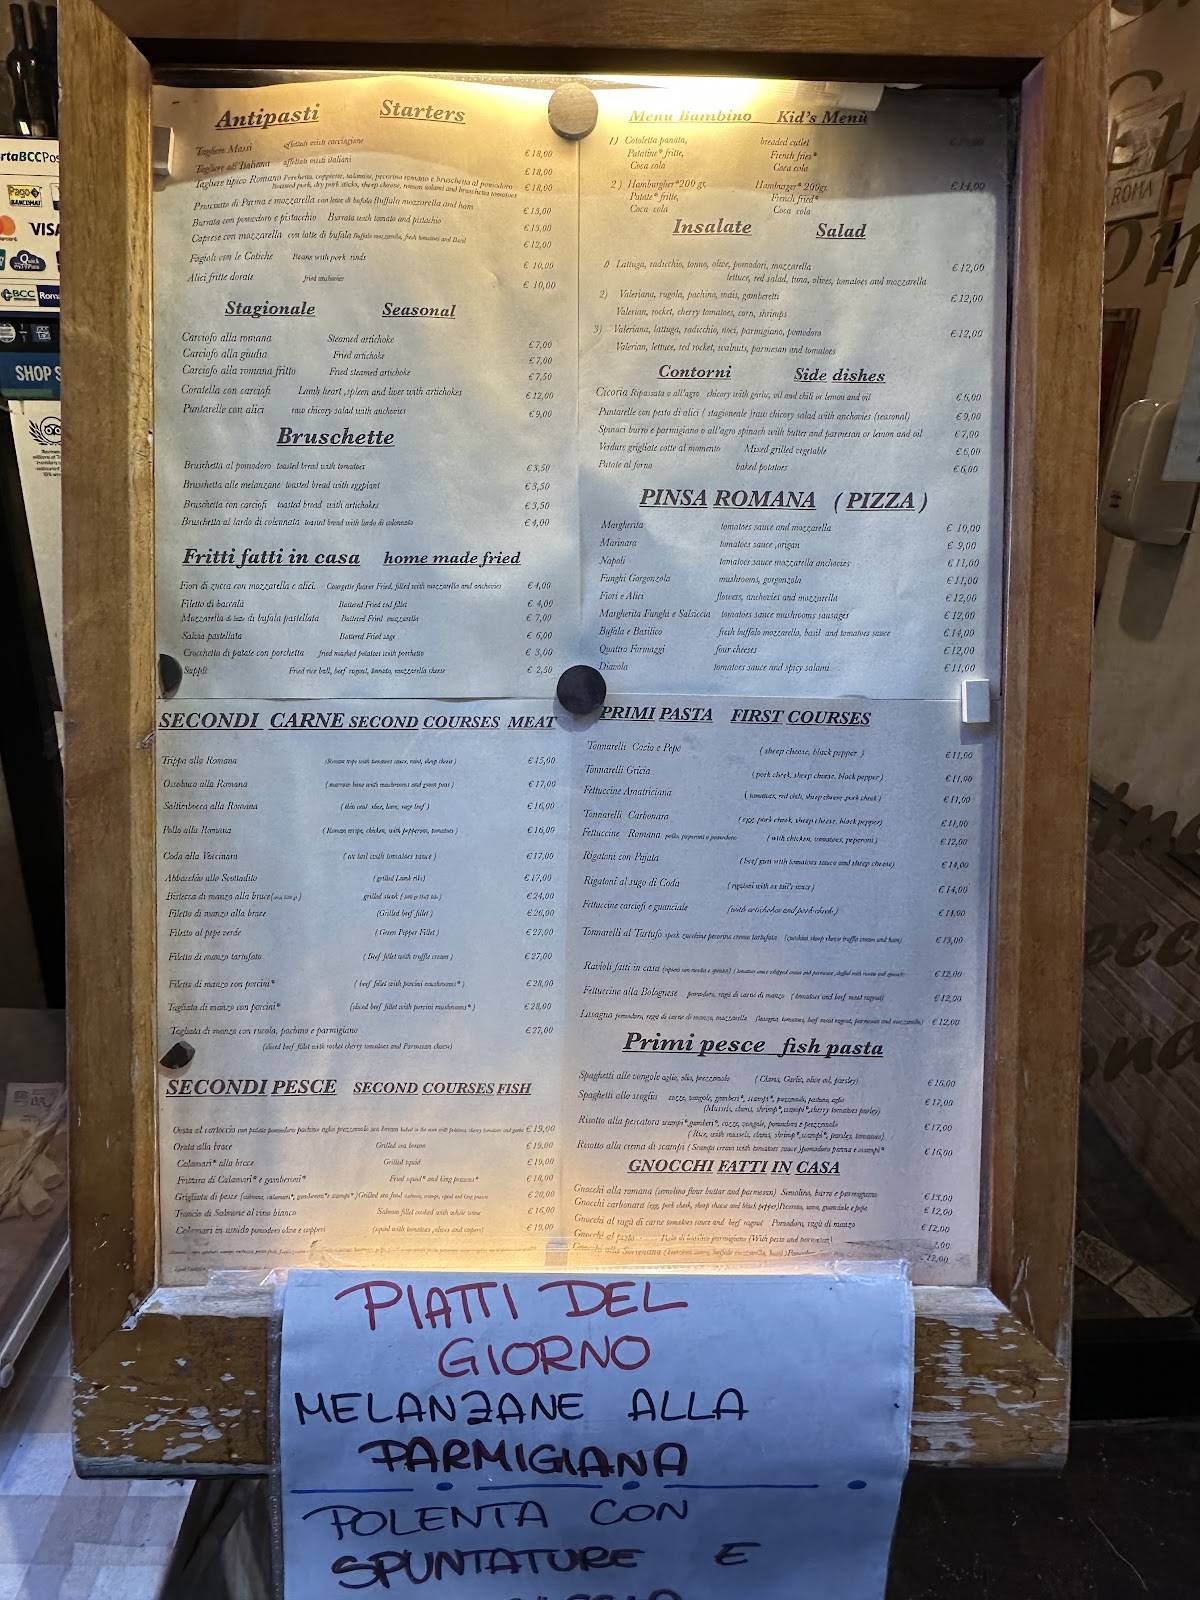 Antipasti Starters
Tagliere Massi affettati misti coccinzione € 18,00
Tagliere all'Italiana affettati misti italiani € 18,00
Tagliere tipico Romano Porchetta, coppiette, salamino, pecorino romano e bruschetta al pomodoro € 18,00
Roasted pork, dry pork sticks, sheep cheese, roman salami and bruschetta tomatoes
Prosciutto di Parma e mozzarella con latte di bufala Buffalo mozzarella and ham € 13,00
Burrata con pomodoro e pistacchio Burrata with tomato and pistachio € 13,00
Caprese con mozzarella con latte di bufala Buffalo mozzarella, fresh tomatoes and Basil € 12,00
Fagioli con le Cotiche Beans with pork rinds € 10,00
Alici fritte dorate fried anchovies € 10,00
Stagionale Seasonal
Carciofo alla romana Steamed artichoke € 7,00
Carciofo alla giudia Fried artichoke € 7,00
Carciofo alla romana fritto Fried steamed artichoke € 7,50
Coratella con carciofi Lamb heart ,spleen and liver with artichokes € 12,00
Puntarelle con alici raw chicory salad with anchovies € 9,00
Bruschette
Bruschetta al pomodoro toasted bread with tomatoes € 3,50
Bruschetta alle melanzane toasted bread with eggplant € 3,50
Bruschetta con carciofi toasted bread with artichokes € 3,50
Bruschetta al lardo di colonnata toasted bread with lardo di colonnata € 4,00
Fritti fatti in casa home made fried
Fiori di zucca con mozzarella e alici. Courgette flower Fried, filled with mozzarella and anchovies € 4,00
Filetto di baccalà Battered Fried cod fillet € 4,00
Mozzarella di latte di bufala pastellata Battered Fried mozzarella € 7,00
Salvia pastellata Battered Fried sage € 6,00
Crocchetta di patate con porchetta fried mashed potatoes with porchetta € 3,00
Supplì Fried rice ball, beef ragout, tomato, mozzarella cheese € 2,50
Menu Bambino Kid's Menù
1) Cotoletta panata, breaded cutlet
Patatine* fritte, French fries*
Coca cola Coca cola
2 ) Hamburgher*200 gr. Hamburger* 200gr. € 14,00
Patate* fritte, French fried*
Coca cola Coca cola
Insalate Salad
1) Lattuga, radicchio, tonno, olive, pomodori, mozzarella € 12,00
lettuce, red salad, tuna, olives, tomatoes and mozzarella
2) Valeriana, rugola, pachino, mais, gamberetti € 12,00
Valerian, rocket, cherry tomatoes, corn, shrimps
3) Valeriana, lattuga, radicchio, noci, parmigiano, pomodoro € 12,00
Valerian, lettuce, red rocket, walnuts, parmesan and tomatoes
Contorni Side dishes
Cicoria Ripassata o all'agro chicory with garlic, oil and chili or lemon and oil € 6,00
Puntarelle con pesto di alici ( stagionale )raw chicory salad with anchovies (seasonal) € 9,00
Spinaci burro e parmigiano o all'agro spinach with butter and parmesan or lemon and oil € 7,00
Verdure grigliate cotte al momento Mixed grilled vegetable € 6,00
Patate al forno baked potatoes € 6,00
PINSA ROMANA ( PIZZA )
Margherita tomatoes sauce and mozzarella € 10,00
Marinara tomatoes sauce ,origan € 9,00
Napoli tomatoes sauce mozzarella anchovies € 11,00
Funghi Gorgonzola mushrooms, gorgonzola € 11,00
Fiori e Alici flowers, anchovies and mozzarella € 12,00
Margherita Funghi e Salsiccia tomatoes sauce mushrooms sausages € 12,00
Bufala e Basilico fresh buffalo mozzarella, basil and tomatoes sauce € 14,00
Quattro Formaggi four cheeses € 12,00
Diavola tomatoes sauce and spicy salami € 11,00
SECONDI CARNE SECOND COURSES MEAT
Trippa alla Romana (Roman tripe with tomatoes sauce, mint, sheep cheese ) € 15,00
Ossobuco alla Romana ( marrow bone with mushrooms and green peas ) € 17,00
Saltimbocca alla Romana ( thin veal slice, ham, sage leaf ) € 16,00
Pollo alla Romana ( Roman recipe, chicken, with pepperoni, tomatoes ) € 16,00
Coda alla Vaccinara ( ox tail with tomatoes sauce ) € 17,00
Abbacchio allo Scottadito (grilled Lamb ribs) € 17,00
Bistecca di manzo alla brace € 24,00
Filetto di manzo alla brace (Grilled beef fillet ) € 26,00
Filetto al pepe verde ( Green Pepper Fillet ) € 27,00
Filetto di manzo tartufato ( Beef fillet with truffle cream ) € 27,00
Filetto di manzo con porcini* ( beef fillet with porcini mushrooms* ) € 28,00
Tagliata di manzo con porcini* (sliced beef fillet with porcini mushrooms* ) € 28,00
Tagliata di manzo con rucola, pachino e parmigiano € 27,00
(sliced beef fillet with rocket cherry tomatoes and Parmesan cheese)
SECONDI PESCE SECOND COURSES FISH
Orata al cartoccio con patate pomodoro pachino aglio prezzemolo € 19,00
Orata alla brace Grilled sea bream € 19,00
Calamari* alla brace Grilled squid € 19,00
Frittura di Calamari* e gamberoni* Fried squid* and king prawns* € 18,00
Grigliata di pesce € 20,00
Trancio di Salmone al vino bianco Salmon fillet cooked with white wine € 16,00
Calamari in umido pomodoro olive e capperi (squid with tomatoes ,olives and capers) € 19,00
PRIMI PASTA FIRST COURSES
Tonnarelli Cacio e Pepe ( sheep cheese, black pepper ) € 11,00
Tonnarelli Gricia ( pork cheek, sheep cheese, black pepper ) € 11,00
Fettuccine Amatriciana ( tomatoes, red chili, sheep cheese ,pork cheek ) € 11,00
Tonnarelli Carbonara ( egg, pork cheek, sheep cheese, black pepper) € 11,00
Fettuccine Romana pollo, peperoni e pomodoro ( with chicken, tomatoes, peperoni ) € 12,00
Rigatoni con Pajata ( beef guts with tomatoes sauce and sheep cheese) € 14,00
Rigatoni al sugo di Coda ( rigatoni with ox tail's sauce ) € 14,00
Fettuccine carciofi e guanciale (with artichokes and pork cheek ) € 14,00
Tonnarelli al Tartufo speck zucchine pecorino crema tartufata (zucchini sheep cheese truffle cream and ham) € 13,00
Ravioli fatti in casa € 12,00
Fettuccine alla Bolognese pomodoro, ragù di carne di manzo ( tomatoes and beef meat ragout) € 12,00
Lasagna pomodoro, ragù di carne di manzo, mozzarella (lasagna, tomatoes, beef meat ragout, parmesan and mozzarella) € 12,00
Primi pesce fish pasta
Spaghetti alle vongole aglio, olio, prezzemolo ( Clams, Garlic, olive oil, parsley) € 16,00
Spaghetti allo scoglio cozze, vongole, gamberi*, scampi*, prezzemolo, pachino, aglio € 17,00
(Mussels, clams, shrimp*, scampi*, cherry tomatoes parsley)
Risotto alla pescatora scampi*,gamberi*, cozze, vongole, pomodoro e prezzemolo € 17,00
( Rice, with mussels, clams, shrimp*, scampi*, parsley, tomatoes)
Risotto alla crema di scampi ( Scampi cream with tomatoes sauce )pomodoro panna e scampi* € 16,00
GNOCCHI FATTI IN CASA
Gnocchi alla romana (semolino flour butter and parmesan) Semolino, burro e parmigiano € 13,00
Gnocchi carbonara (egg, pork cheek, sheep cheese and black pepper)Pecorino, uova, guanciale e pepe € 12,00
Gnocchi al ragù di carne tomatoes sauce and beef ragout Pomodoro, ragù di manzo € 12,00
Gnocchi al pesto (With pesto and parmesan) 2,00
€ 12,00
PIATTI DEL
GIORNO
MELANZANE ALLA
PARMIGIANA
POLENTA CON
SPUNTATURE E
Pago
BANCOMAT
VISA
BCC Roma
SHOP
ROMA